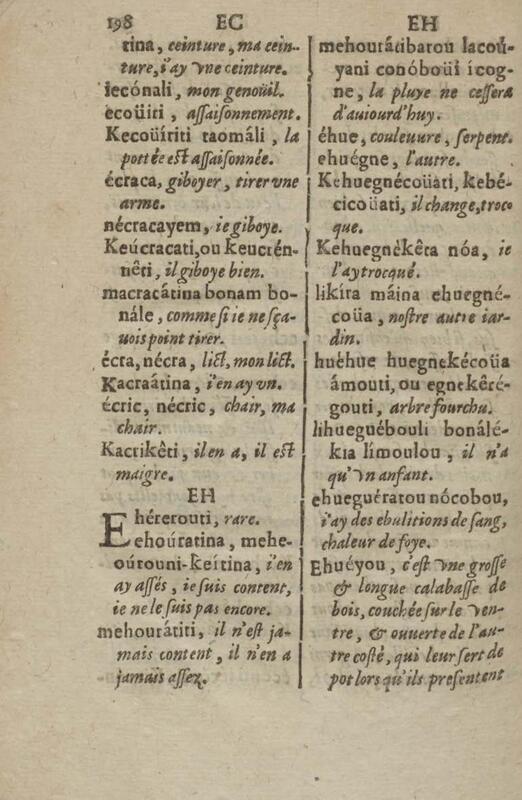 198 EC EH
tina, ceinture, ma cein-
ture, i'ay vne ceinture.
iecónali, mon genoüil.
ecoüiti, assaisonnement.
Kecoüíriti taomáli, la
pottée est assaisonnée.
écraca, giboyer, tirer vne
arme.
nécracayem, ie giboye.
Keúcracati, ou keucrén-
nêti, il giboye bien.
macracátina bonam bo-
nále, comme si ie ne sça-
uois point tirer.
écra, nécra, lict, mon lict.
Kacraátina, i'en ay vn.
écric, nécric, chair, ma
chair.
Kacrikêti, il en a, il est
maigre.
EH
Ehérerouti, rare.
Eehoúratina, mehe-
oúrouni-keítina, i'en
ay assés, ie suis content,
ie ne le suis pas encore.
mehourátiti, il n'est ja-
mais content, il n'en a
jamais assez.
mehourátibarou lacoú-
yani conóboüi icog-
ne, la pluye ne cessera
d'auiourd'huy.
éhue, couleuure, serpent.
ehuégne, l'autre.
Kehuegnécoüati, kebé-
cicoüati, il change, troco
que.
Kehuegnèkêta nóa, ie
l'ay trocqué.
likíra máina ehuegné-
coüa, nostre autre iar-
din.
huéhue huegnekécoüa
ámouti, ou egnekêré-
gouti, arbre fourchu.
lihueguébouli bonálé-
kia límoulou, il n'a
qu'vn anfant.
ehueguératou nócobou,
i'ay des ebulitions de sang,
chaleur de foye.
Ehuéyou, c'est vne grosse
& longue calabasse de
bois, couchée sur le ven-
tre, & ouuerte de l'au-
tre costé, qui leur sert de
pot lors qu'ils presentent